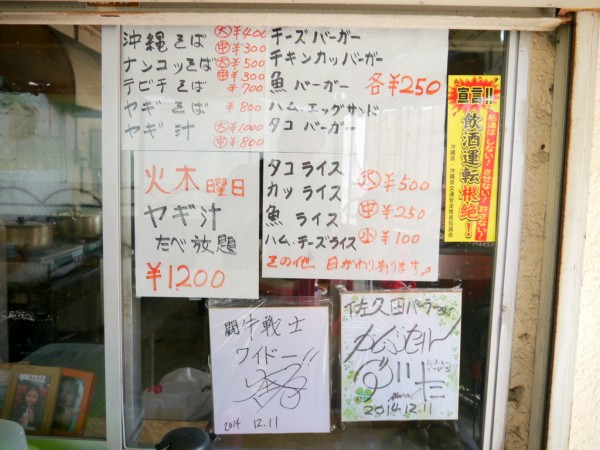 沖縄そば 大¥400
中¥300
ナンコツそば 大¥500
中¥300
テビチそば ¥700
ヤギそば ¥800
ヤギ汁 大¥1000
中¥800
チーズバーガー
チキンカツバーガー
魚バーガー 各¥250
ハムエッグサンド
タコバーガー
火木曜日
ヤギ汁
たべ放題
¥1200
タコライス
カツライス 大¥500
魚ライス 中¥250
ハム、チーズライス 小¥100
その他 日がわり有ります。
宣言!!
飲酒運転根絶!
私達はしない!させない!許さない!
沖縄県・沖縄県交通安全推進協議会
闘牛戦士
ワイドー!!
2014 12.11
佐久田パーラーさん
2014 12.11